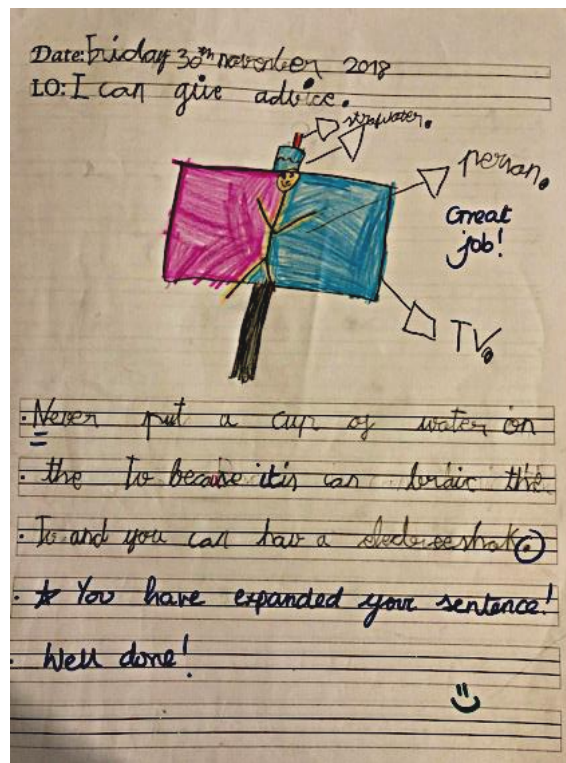 Date: Friday 30th november 2018
LO: I can give advice.
water.
person.
Great
job!
TV.
Never put a cup of water on
the Tv because it is can the
Tv and you can hav a
☆ You have expanded your sentence!
Well done!